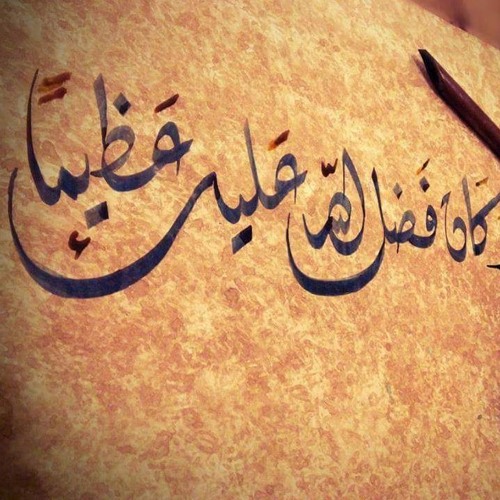 وَكَانَ فَضل اللّه عَليك عَظِيمًا